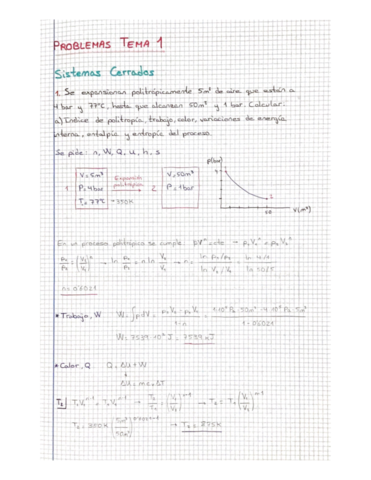 PROBLEMAS TEMA 1
Sistemas Cerrados
1. Se expansionan politrópicamente 5m³ de aire que están a
4 bar y 77ºC, hasta que alcanzan 50m³ y 1 bar. Calcular:
a) Índice de politropía, trabajo, calor, variaciones de energía
interna, entalpía y entropía del proceso.
Se pide: n, W, Q, u, h, s
p(bar)
1 V1=5m³ P1=4bar T1=77ºC →350K
Expansión politrópica
2 V2=50m³ P2=1bar
4
1
2
50
V(m³)
En un proceso politrópico se cumple pVⁿ=cte → p1V1ⁿ = p2V2ⁿ
p1/p2 = (V2/V1)ⁿ → ln p1/p2 = n ln V2/V1 → n = ln p1/p2 / ln V2/V1 = ln 4/1 / ln 50/5
n=0'6021
* Trabajo, W W=∫pdV = (p2V2 - p1V1)/(1-n) = (1·10⁵Pa·50m³-4·10⁵Pa·5m³)/(1-0'6021)
W=7539·10³ J = 7539 kJ
* Calor, Q Q=ΔU+W
ΔU=mcvΔT
T2 T1V1ⁿ⁻¹ = T2V2ⁿ⁻¹ → T2/T1 = (V1/V2)ⁿ⁻¹ → T2 = T1(V1/V2)ⁿ⁻¹
T2=350K (5m³/50m³)^0'6021-1 → T2=875K